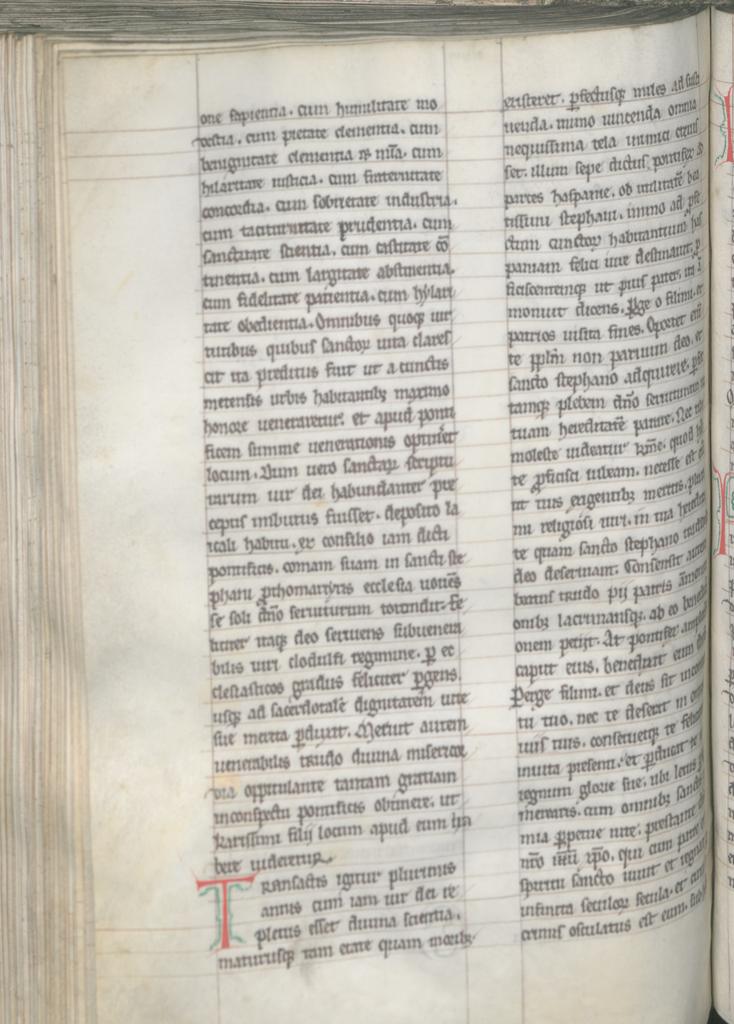 one sapientia. cum humilitate mo
destia. cum pietate clementia. cum
benignitate clementia cum
hilaritate iusticia. cum fraternitate
concordia. cum sobrietate industria.
cum taciturnitate prudentia. cum
sanctitate scientia. cum castitate cō
tinentia. cum largitate abstinentia.
cum fidelitate patientia. cum hylari
tate obedientia. Omnibus quoqꝫ uir
tutibus quibus sanctoꝝ uita clares
cit ita preditus fuit ut a cunctis
metensis urbis habitantibꝫ maximo
honore ueneraretur. et apud ponti
ficem summe uenerationis optineret
locum. Dum uero sanctaꝝ scriptu
rarum uir dei habundanter pre
ceptis imbutus fuisset. deposito la
icali habitu. ex consilio iam dicti
pontificis. comam suam in sancti ste
phani ꝓthomartyris ecclesia uouēs
se soli dn̄o seruiturum totondit. Fe
liciter itaqꝫ deo seruiens subuenera
bilis uiri clodulfi regimine. ꝑ ec
clesiasticos gradus feliciter ꝑgens.
usqꝫ ad sacerdotale dignitatem uite
sue merita ꝑduxit. Meruit autem
uenerabilis trudo diuina misericor
dia oppitulante tantam gratiam
inconspectu pontificis obtinere. ut
karissimi filij locum apud eum ha
bere uideretur.
Transactis igitur plurimis
annis cum iam uir dei re
pletus esset diuina scientia.
maturusqꝫ tam etate quam moribꝫ
existeret. ꝑfectusqꝫ miles ad
uenda. immo uincenda omnia
nequissima tela inimici
set. illum sepe dictus pontifex
partes haspanie. ob utilitatē bea
tissimi stephani. immo ad
ctum cunctoꝝ habitantium has
paniam felici iure destinauit.
ficiscentemqꝫ ut pius pater. ita
monuit dicens. Perge o filimi. et
patrios uisita fines. Oportet eni
te pplm̄ non paruum deo. et
sancto stephano adquirere.
tamqꝫ plebem dn̄o seruituram
tuam hereditare patrie. Nec tibi
moleste uideatur kme. quod
te ꝓficisci iubeam. necesse est
ut tuis exigentibꝫ meritis.
mi religiosi uiri. in tua heredita
te quam sancto stephano
deo deseruiant. Consensit autem
beatus trudo pij patris
onibꝫ lacrimansqꝫ. ab eo benedicti
onem petijt. At pontifex
caput eius. benedixit eum
Perge filimi. et deus sit
tu tuo. nec te deserat in
uiis tuis. conseruetqꝫ te
in uita presenti. et ꝑducat te
regnum glorie sue. ubi letus
merearis. cum omnibꝫ sanctis
mia perpetue uite. prestante
nr̄o xp̄o. qui cum patre
spiritu sancto uiuit et regnat
infinita seculoꝝ secula. et
crimis osculatus est eum.